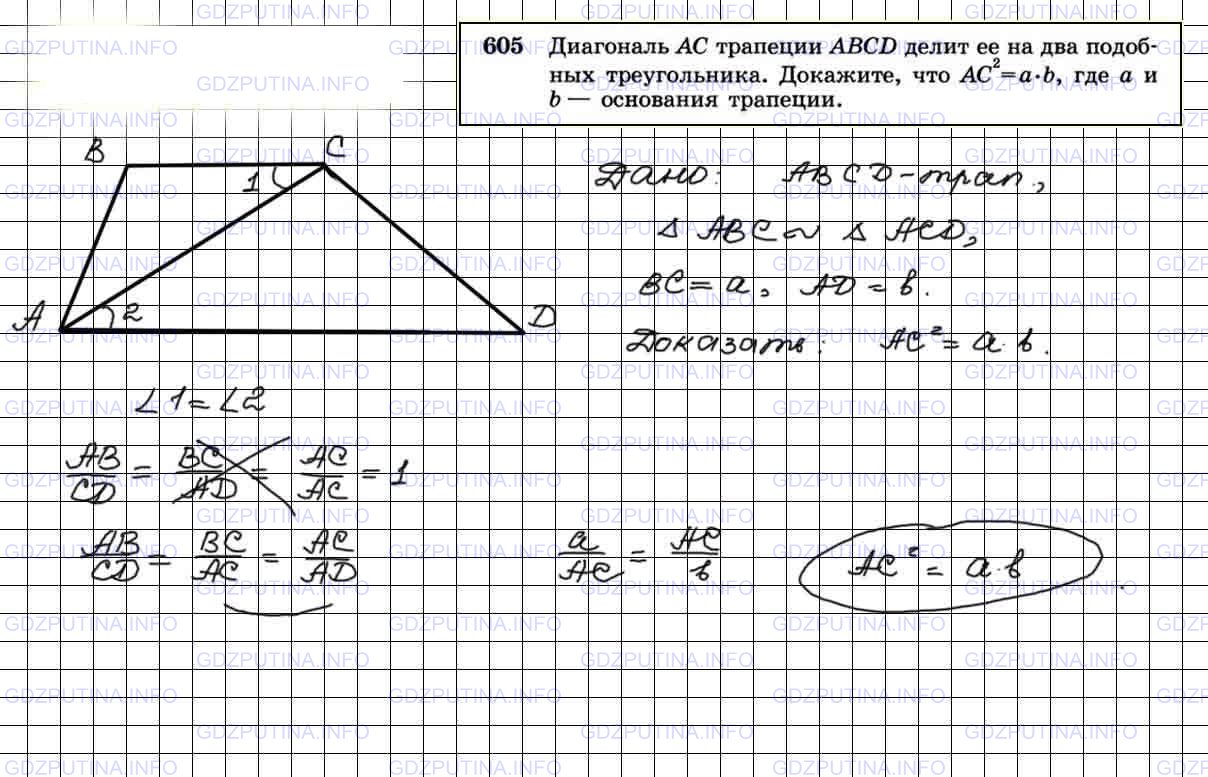 605 Диагональ AC трапеции ABCD делит ее на два подоб-
ных треугольника. Докажите, что AC²=a·b, где a и
b — основания трапеции.
B
C
1
A
2
D
Дано: ABCD-трап.,
△ ABC ~ △ ACD,
BC = a, AD = b.
Доказать: AC² = a·b.
∠1 = ∠2
AB/CD = BC/AD = AC/AC = 1
AB/CD = BC/AC = AC/AD
a/AC = AC/b
AC² = a·b
GDZPUTINA.INFO